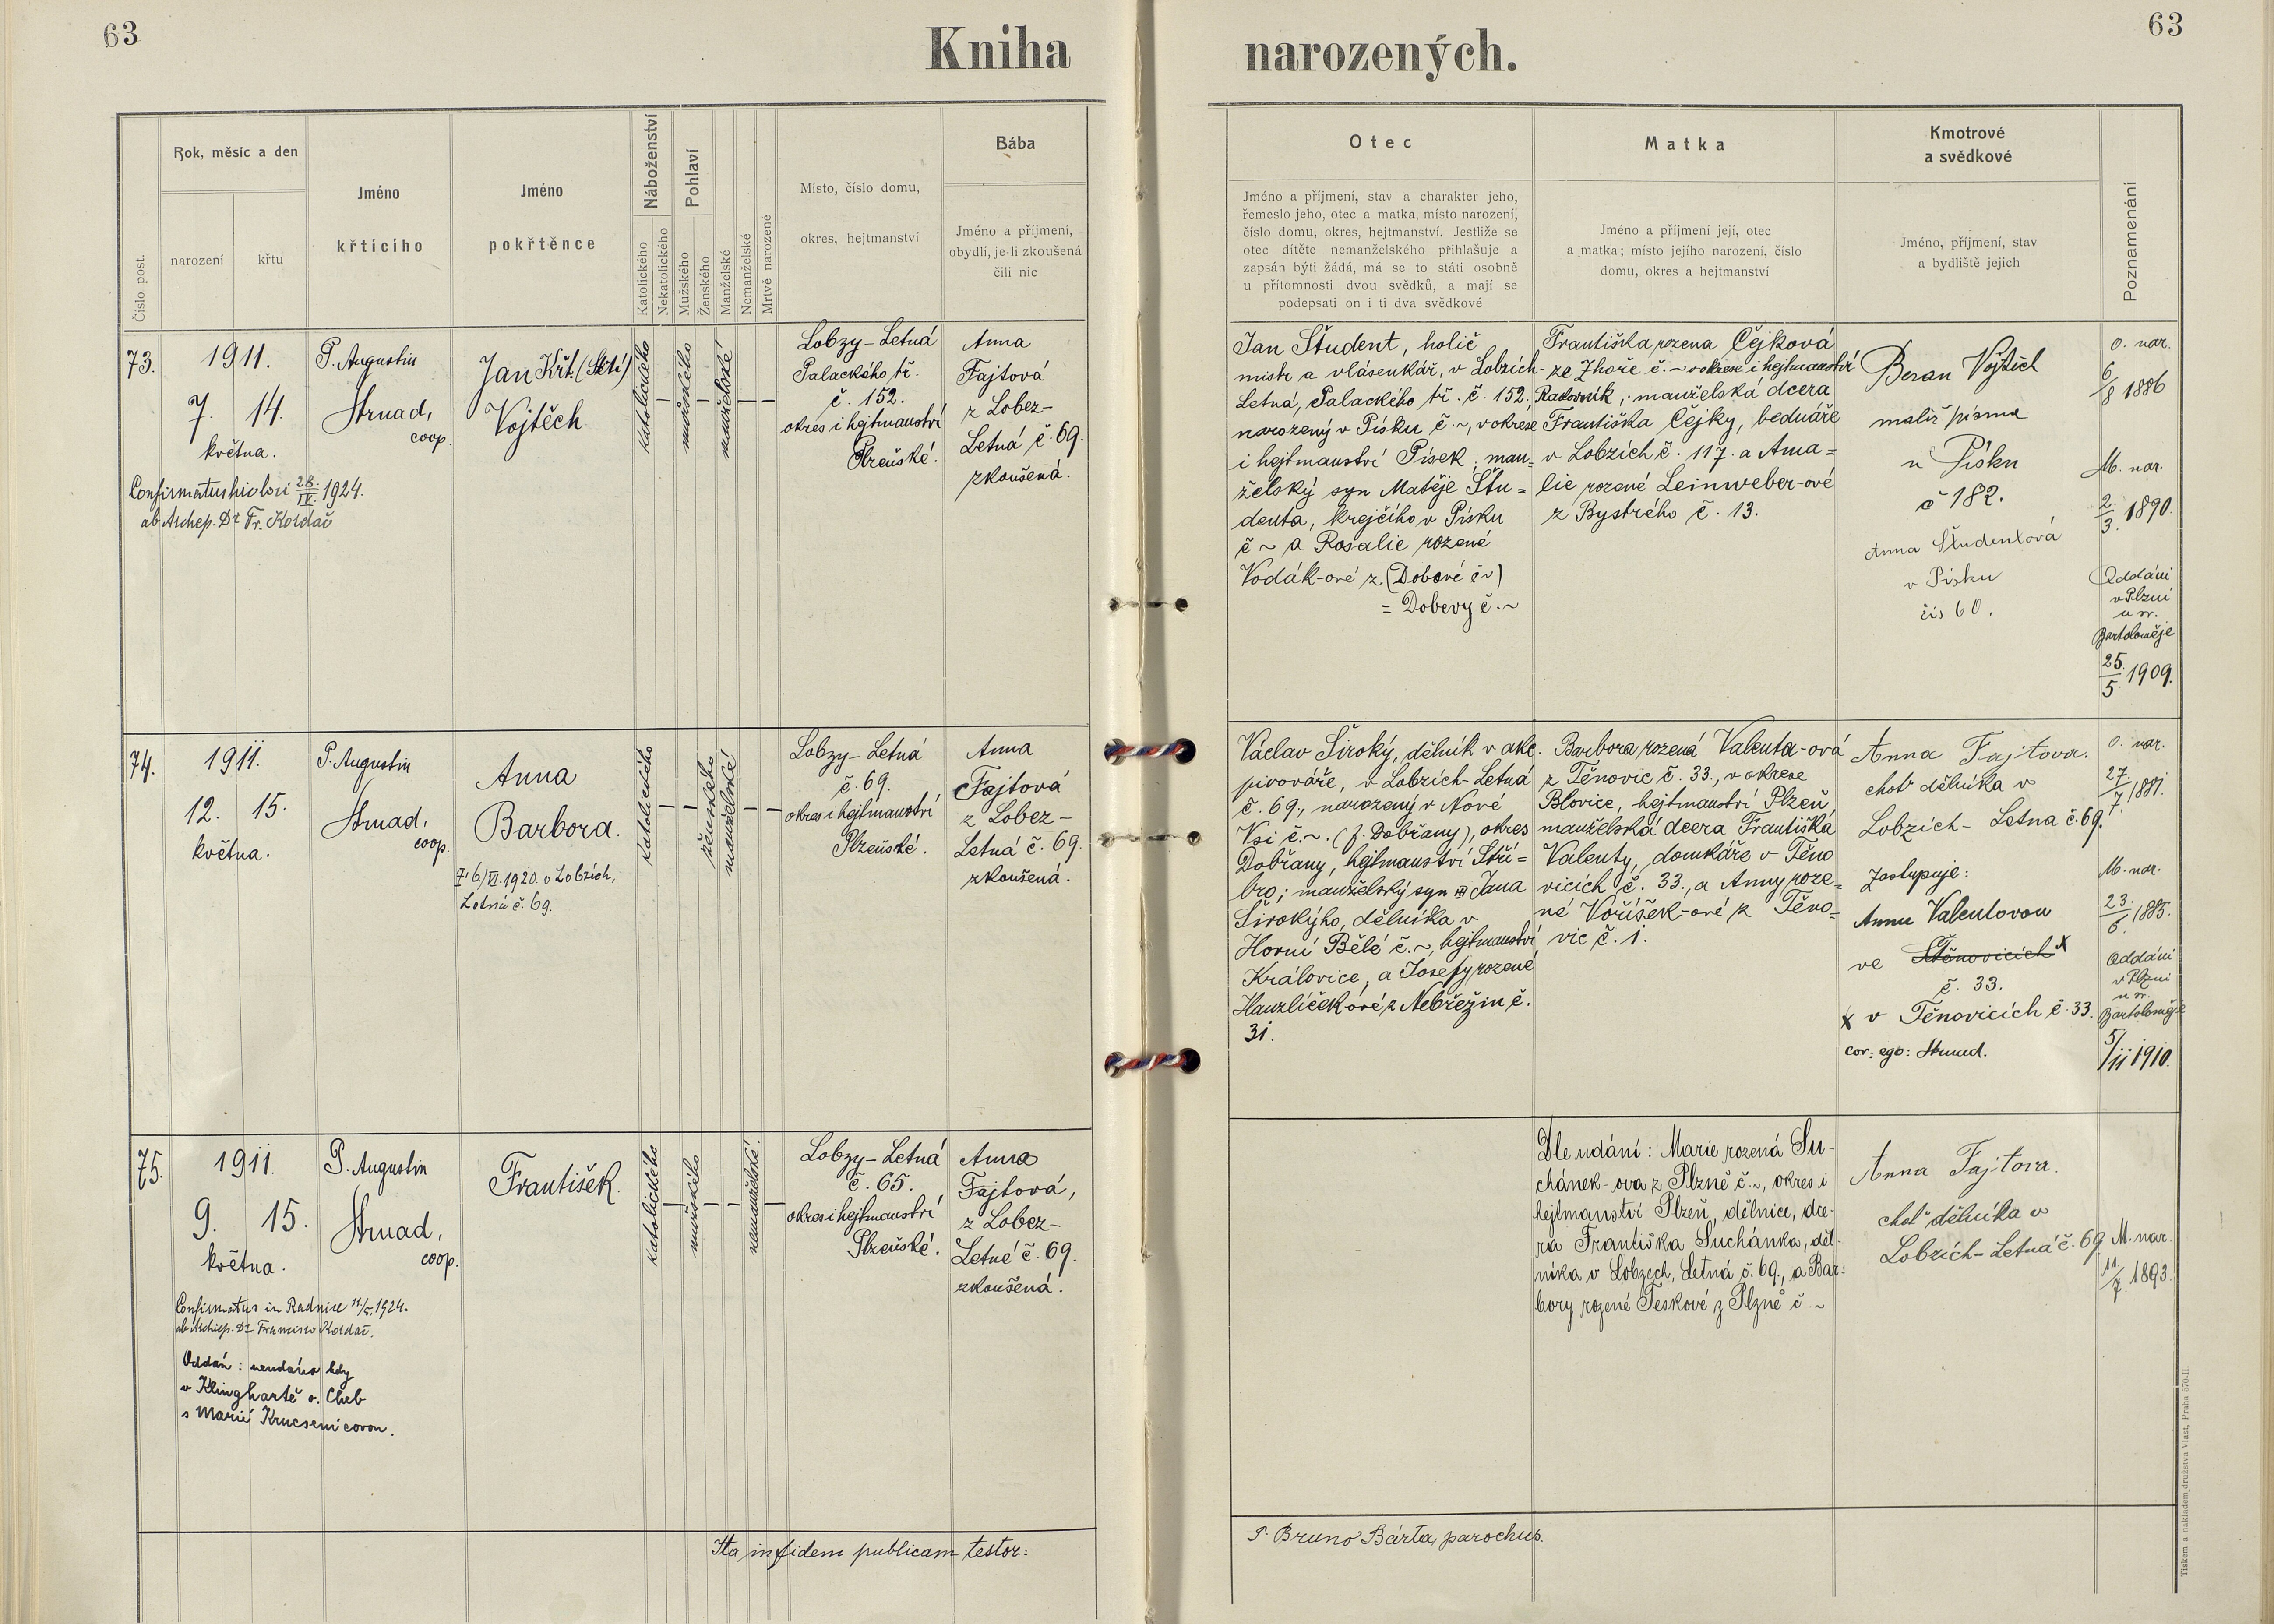 63
63
Kniha narozených.
Číslo post.
Rok, měsíc a den
narození
křtu
Jméno
křtícího
Jméno
pokřtěnce
Náboženství
Katolického
Nekatolického
Pohlaví
Mužského
Ženského
Manželské
Nemanželské
Mrtvě narozené
Místo, číslo domu,
okres, hejtmanství
Bába
Jméno a příjmení,
obydlí, je-li zkoušená
čili nic
Otec
Jméno a příjmení, stav a charakter jeho,
řemeslo jeho, otec a matka, místo narození,
číslo domu, okres, hejtmanství. Jestliže se
otec dítěte nemanželského přihlašuje a
zapsán býti žádá, má se to státi osobně
u přítomnosti dvou svědků, a mají se
podepsati on i ti dva svědkové
Matka
Jméno a příjmení její, otec
a matka; místo jejího narození, číslo
domu, okres a hejtmanství
Kmotrové
a svědkové
Jméno, příjmení, stav
a bydliště jejich
Poznamenání
73.
1911.
7. 14.
května.
Confirmatus hic loci 28./IV. 1924.
ab Archep. Dr Fr. Kordač
P. Augustin
Strnad,
coop.
Jan Křt. (Stětí)
Vojtěch
katolického
—
mužského
—
manželské
— —
Lobzy-Letná
Palackého tř.
č. 152.
okres i hejtmanství
Plzeňské.
Anna
Fajtová
z Lobez-
Letná č. 69.
zkoušená.
Jan Študent, holič
mistr a vlásenkář, v Lobzích-
Letná, Palackého tř. č. 152.
narozený v Písku č. ~, v okrese
i hejtmanství Písek; man-
želský syn Matěje Štu=
denta, krejčího v Písku
č ~ a Rosalie rozené
Vodák-ové z (Dobové č ~)
= Dobevy č. ~
Františka rozena Čejková
ze Zhoře č. ~ v okrese i hejtmanství
Rakovník; manželská dcera
Františka Čejky, bednáře
v Lobzích č. 117. a Ama=
lie rozené Leinweber-ové
z Bystrého č. 13.
Beran Vojtěch
malíř písma
v Písku
č 182.
Anna Študentová
v Písku
čís 60.
O. nar.
6/8 1886
M. nar.
2./3. 1890.
Oddáni
v Plzni
u sv.
Bartoloměje
25./5. 1909.
74.
1911.
12. 15.
května.
P. Augustin
Strnad,
coop.
Anna
Barbora.
† 6/VI. 1920 v Lobzích,
Letná č. 69.
katolického
— —
ženského
manželské
— —
Lobzy-Letná
č. 69.
okres i hejtmanství
Plzeňské.
Anna
Fajtová
z Lobez-
Letná č. 69.
zkoušená.
Václav Široký, dělník v akc.
pivováře, v Lobzích-Letná
č. 69., narozený v Nové
Vsi č. ~. (f. Dobřany), okres
Dobřany, hejtmanství Stří=
bro; manželský syn Jana
Širokýho, dělníka v
Horní Bělé č. ~, hejtmanství
Kralovice, a Josefy rozené
Hauzlíček-ové z Nebřežin č.
31.
Barbora rozená Valenta-ová
z Těnovic č. 33., v okrese
Blovice, hejtmanství Plzeň,
manželská dcera Františka
Valenty, domkáře v Těno
vicích č. 33., a Anny roze=
né Voříšek-ové z Těno=
vic č. 1.
Anna Fajtova.
choť dělníka v
Lobzích- Letna č. 69.
Zastupuje:
Annu Valentovou
ve Štěnovicích x
č. 33.
x v Těnovicích č. 33.
cor: ego: Strnad.
O. nar.
27./7. 1881.
M. nar.
23./6. 1885.
Oddáni
v Plzni
u sv.
Bartoloměje
5/11 1910.
75.
1911.
9. 15.
května.
Confirmatus in Radnice 11./V. 1924.
ab Archiep. Dr Francisco Kordač.
Oddán: neudáno kdy
v Klinghartě o. Cheb
s Marií
P. Augustin
Strnad,
coop.
František.
katolického
—
mužského
— —
nemanželské.
—
Lobzy-Letná
č. 65.
okres i hejtmanství
Plzeňské.
Anna
Fajtová,
z Lobez-
Letné č. 69.
zkoušená.
Dle udání: Marie rozená Su-
chánek-ova z Plzně č. ~, okres i
hejtmanství Plzeň, dělnice, dce-
ra Františka Suchánka, děl-
níka v Lobzech, Letná č. 69., a Bar-
bory rozené Peskové z Plzně č. ~
Anna Fajtova.
choť dělníka v
Lobzích-Letná č. 69
M. nar.
11/7. 1893.
Ita in fidem publicam testor:
P. Bruno Bárta, parochus.
Tiskem a nákladem družstva Vlast, Praha 570-II.